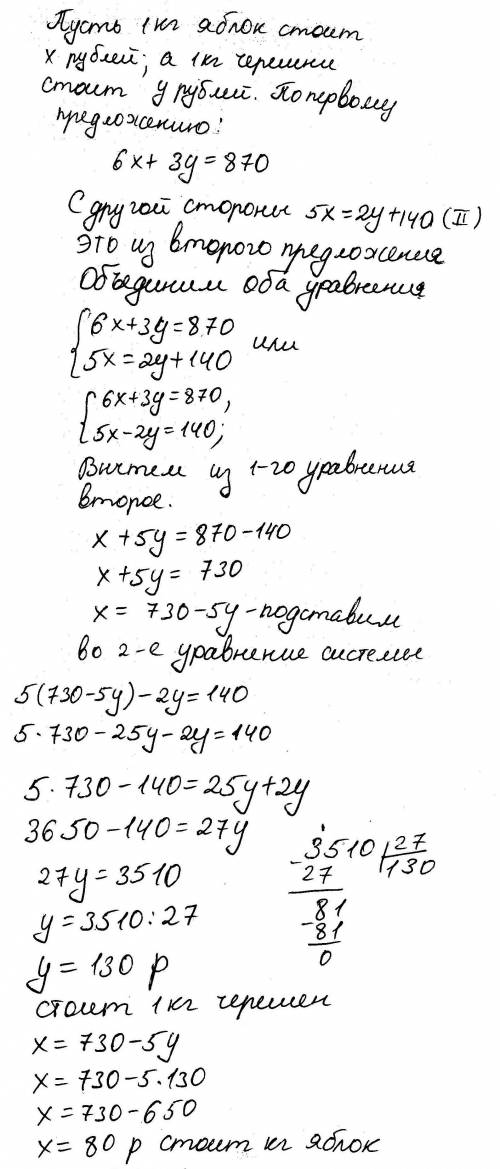 Пусть 1 кг яблок стоит
x рублей, а 1 кг черешни
стоит y рублей. По первому
предложению:
6x + 3y = 870
С другой стороны 5x = 2y + 140 (II)
Это из второго предложения
Объединим оба уравнения
{6x + 3y = 870
5x = 2y + 140 или
{6x + 3y = 870,
5x - 2y = 140;
Вычтем из 1-го уравнения
второе.
x + 5y = 870 - 140
x + 5y = 730
x = 730 - 5y - подставим
во 2-е уравнение системы
5(730 - 5y) - 2y = 140
5·730 - 25y - 2y = 140
5·730 - 140 = 25y + 2y
3650 - 140 = 27y
27y = 3510
y = 3510 : 27
y = 130 р
3510 | 27
- 27 130
81
- 81
0
стоит 1 кг черешен
x = 730 - 5y
x = 730 - 5·130
x = 730 - 650
x = 80 р стоит кг яблок